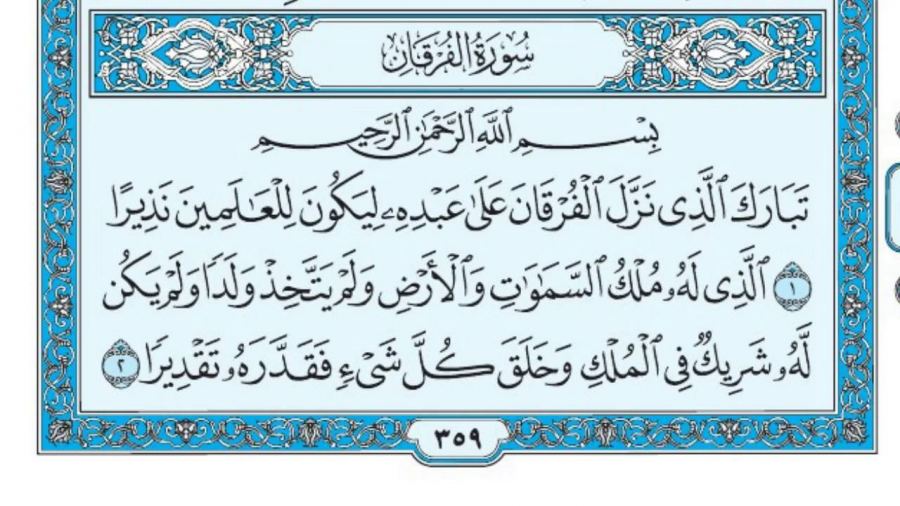 سُورَةُ الفُرْقَانِ
بِسْمِ ٱللَّهِ ٱلرَّحْمَٰنِ ٱلرَّحِيمِ
تَبَارَكَ ٱلَّذِى نَزَّلَ ٱلْفُرْقَانَ عَلَىٰ عَبْدِهِۦ لِيَكُونَ لِلْعَـٰلَمِينَ نَذِيرًا
١ ٱلَّذِى لَهُۥ مُلْكُ ٱلسَّمَـٰوَٰتِ وَٱلْأَرْضِ وَلَمْ يَتَّخِذْ وَلَدًا وَلَمْ يَكُن
لَّهُۥ شَرِيكٌ فِى ٱلْمُلْكِ وَخَلَقَ كُلَّ شَىْءٍ فَقَدَّرَهُۥ تَقْدِيرًا ٢
٣٥٩